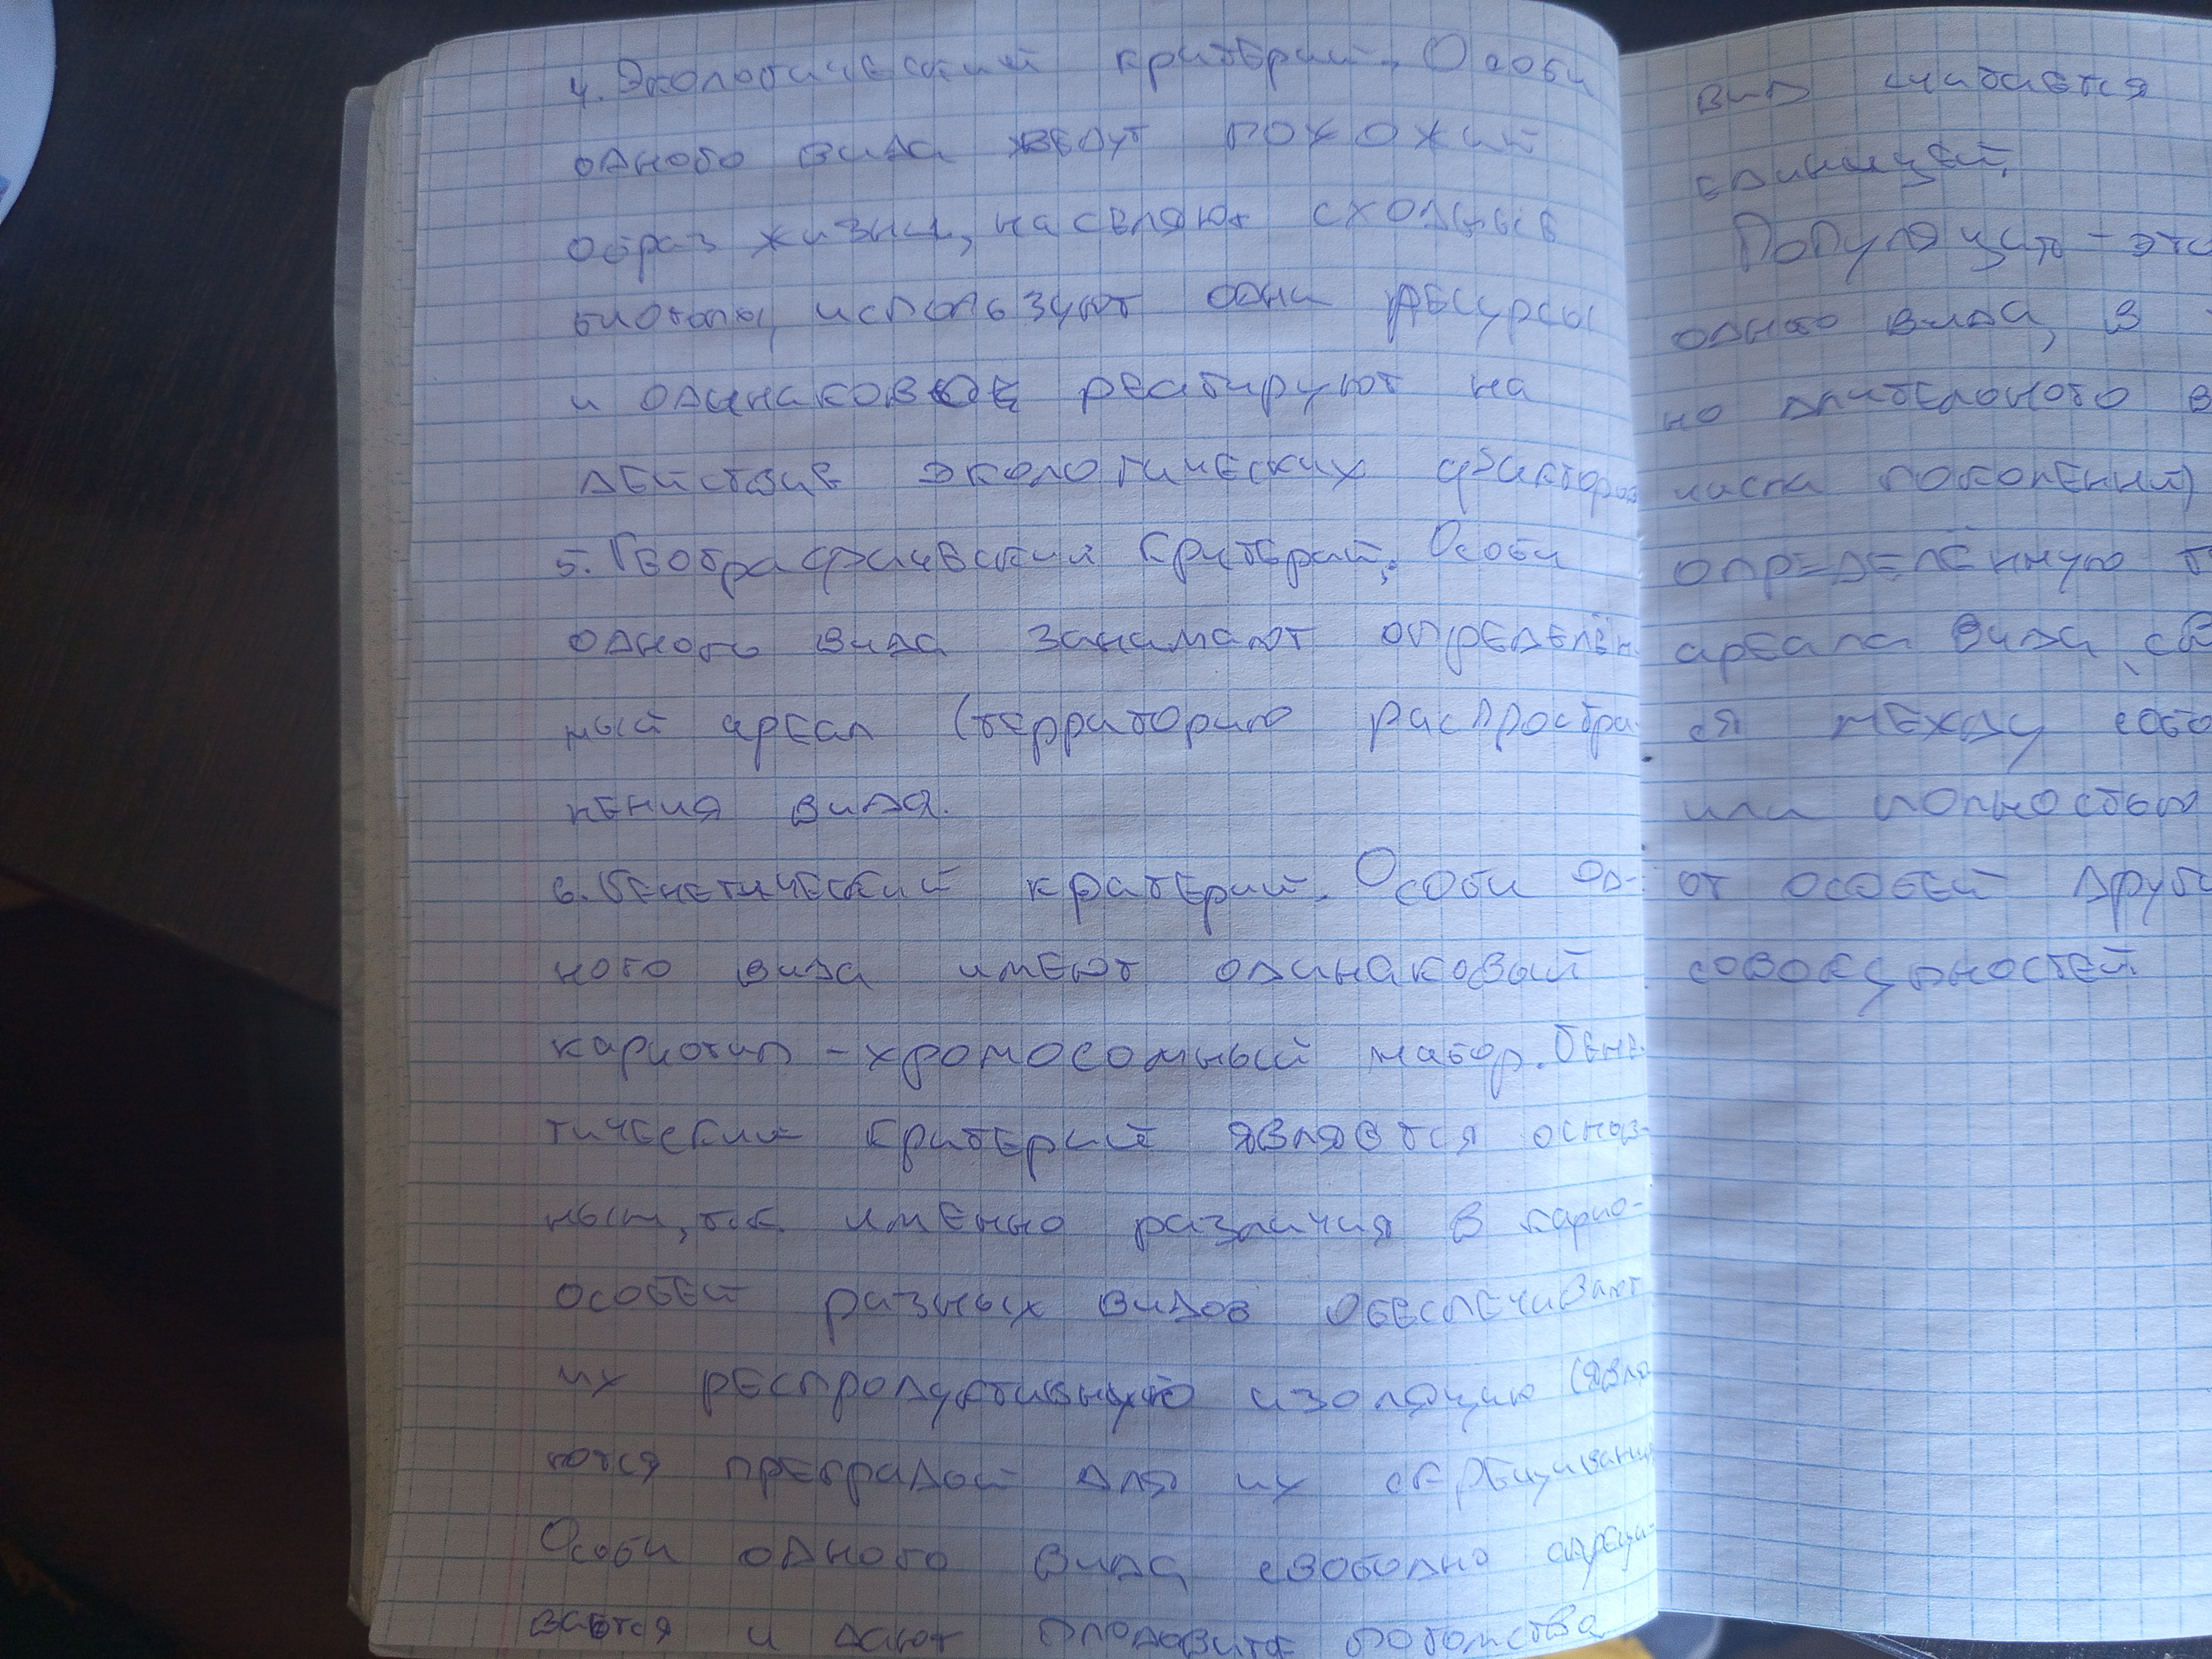 4. Экологический критерий. Особи
одного вида ведут похожий
образ жизни, населяют сходные
биотопы, используют одни ресурсы
и одинаковое реагируют на
действие экологических факторов
5. Географический критерий. Особи
одного вида занимают определён
ный ареал (территорию распростра-
нения вида.
6. Генетический критерий. Особи од-
ного вида имеют одинаковый
кариотип - хромосомный набор. Гене-
тический критерий является основ-
ным, т.к. именно различия в карио-
особей разных видов обеспечивают
их респродуктивную изоляцию (явля
ются преградой для их скрещивания
Особи одного вида свободно скрещи-
вается и дают плодовите потомство
вид считается
единицей.
Популяция - это
одного вида, в
но длительного в
числа поколений)
определённую т
ареала вида, св
ся между собо
или полностью
от особей други
совокупностей